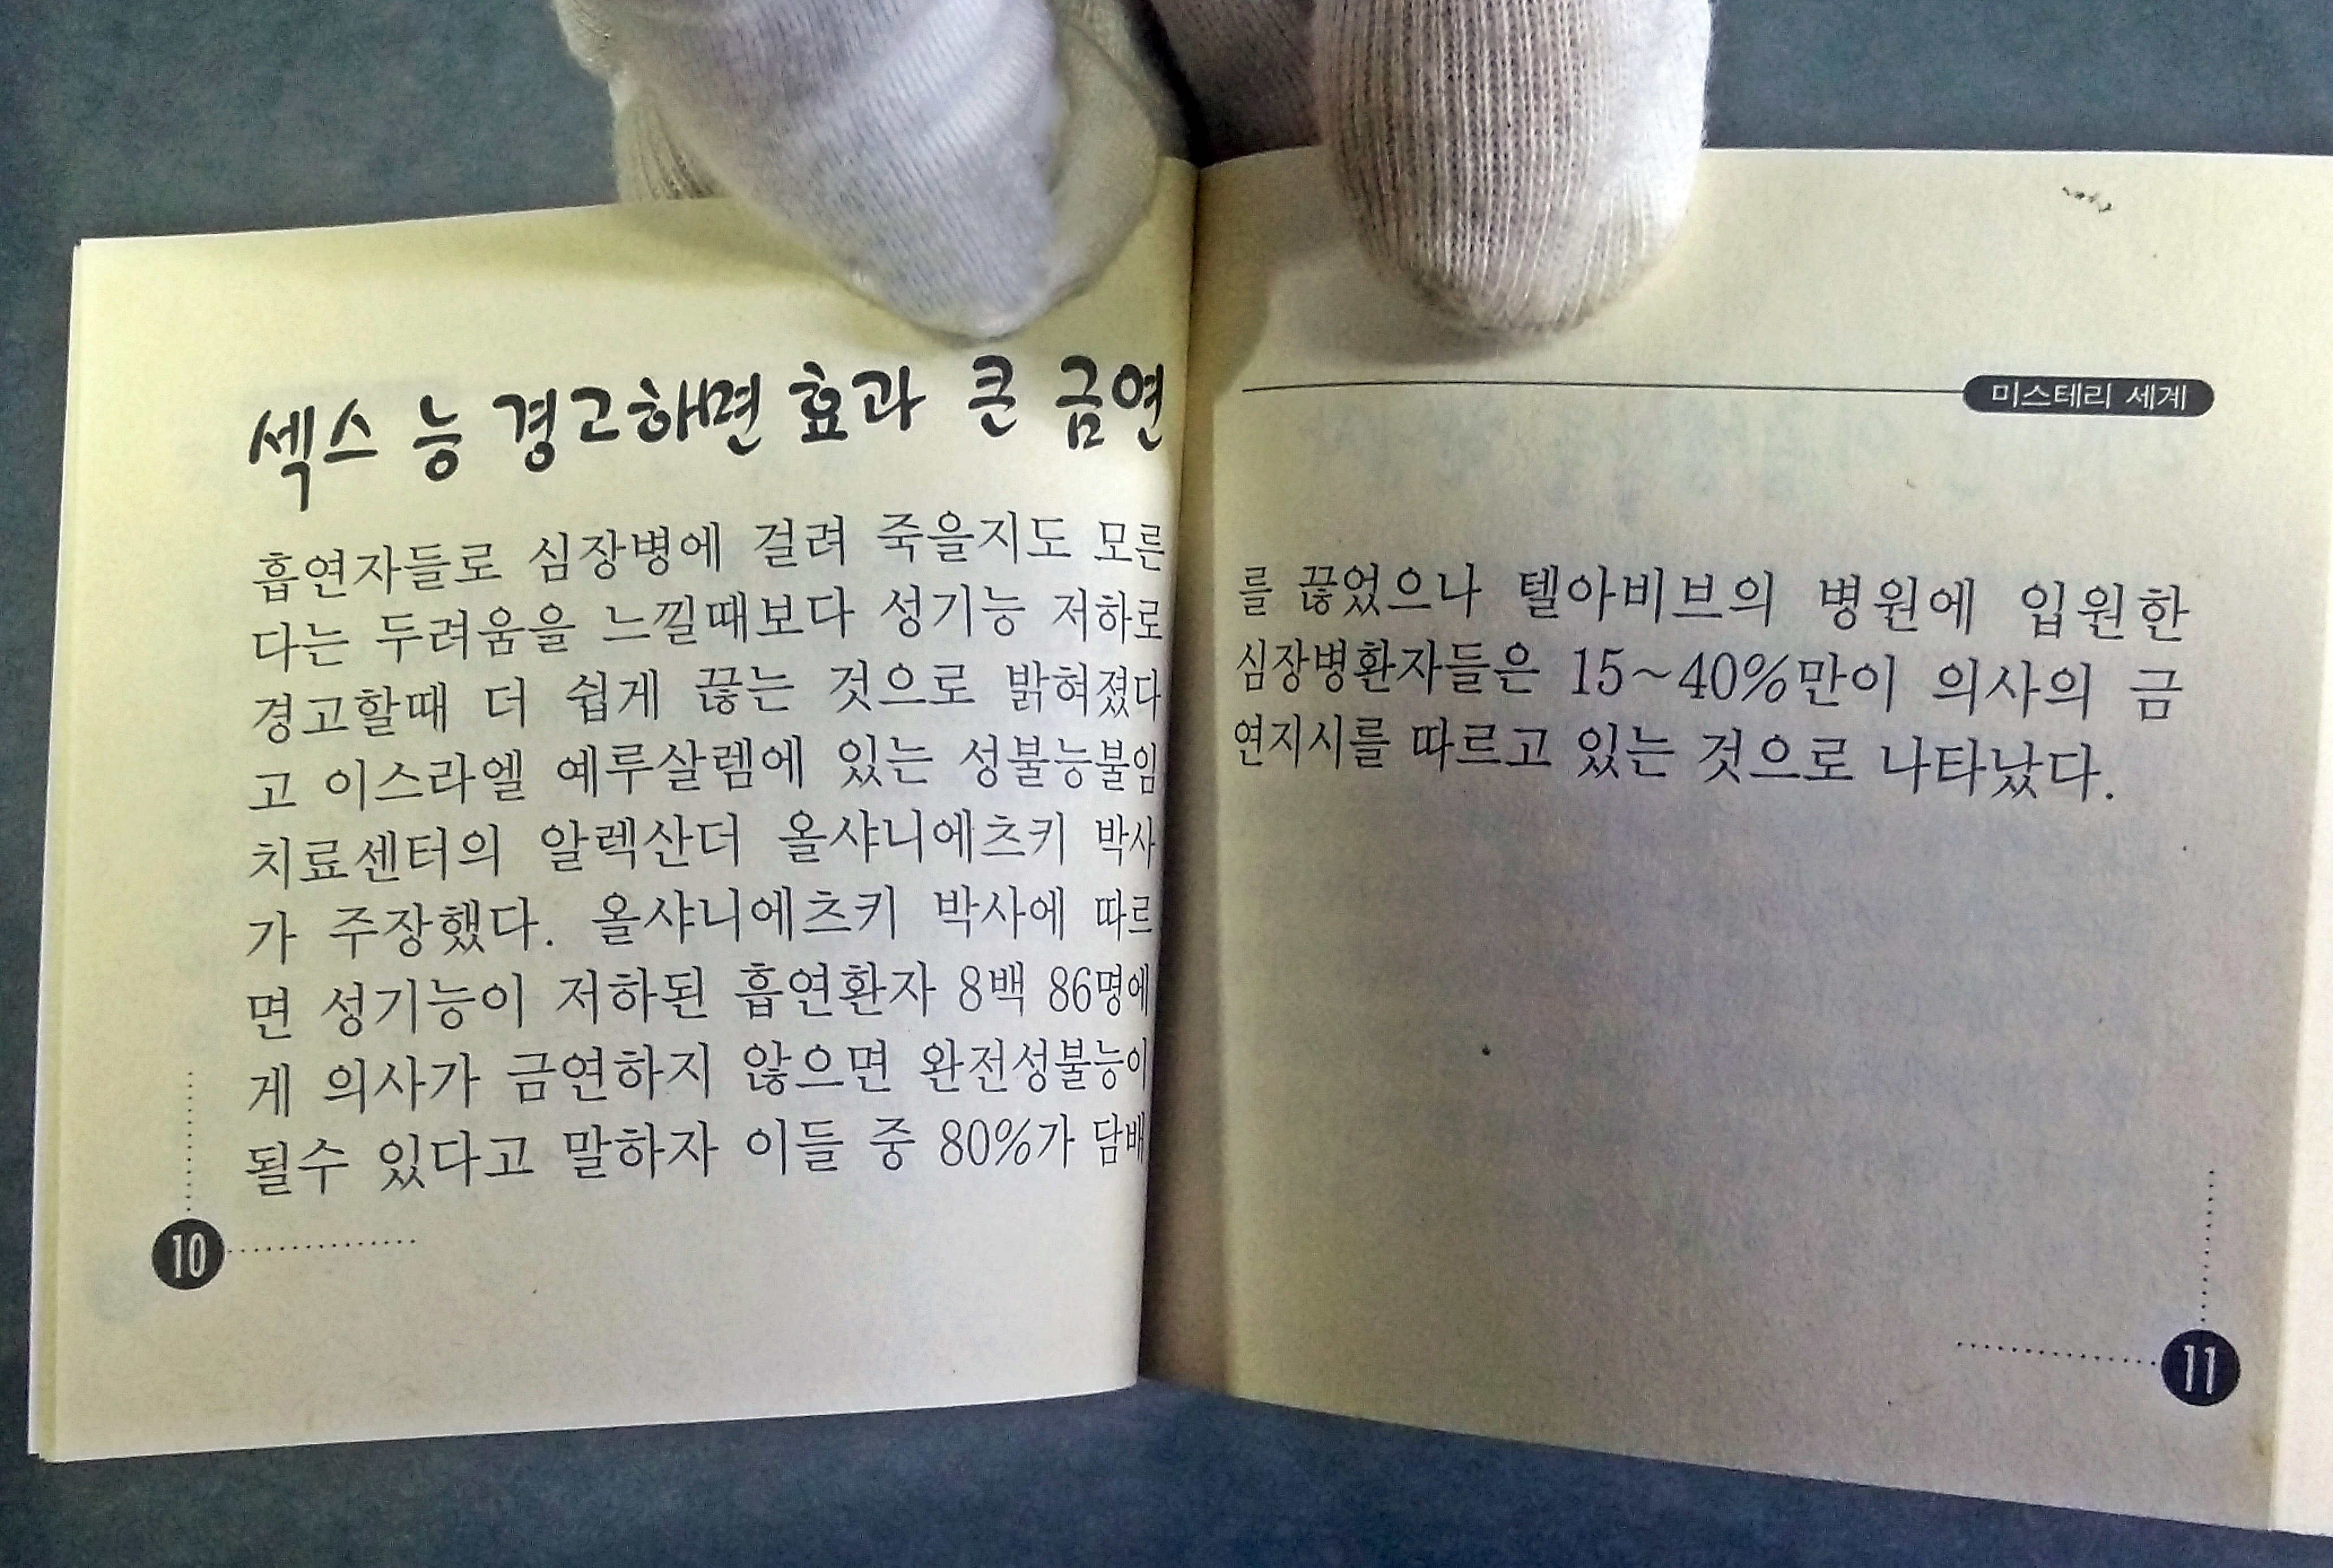 섹스 능 경고하면 효과 큰 금연
흡연자들로 심장병에 걸려 죽을지도 모른
다는 두려움을 느낄때보다 성기능 저하로
경고할때 더 쉽게 끊는 것으로 밝혀졌다
고 이스라엘 예루살렘에 있는 성불능불임
치료센터의 알렉산더 올샤니에츠키 박사
가 주장했다. 올샤니에츠키 박사에 따르
면 성기능이 저하된 흡연환자 8백 86명에
게 의사가 금연하지 않으면 완전성불능이
될수 있다고 말하자 이들 중 80%가 담배
10
미스테리 세계
를 끊었으나 텔아비브의 병원에 입원한
심장병환자들은 15~40%만이 의사의 금
연지시를 따르고 있는 것으로 나타났다.
11